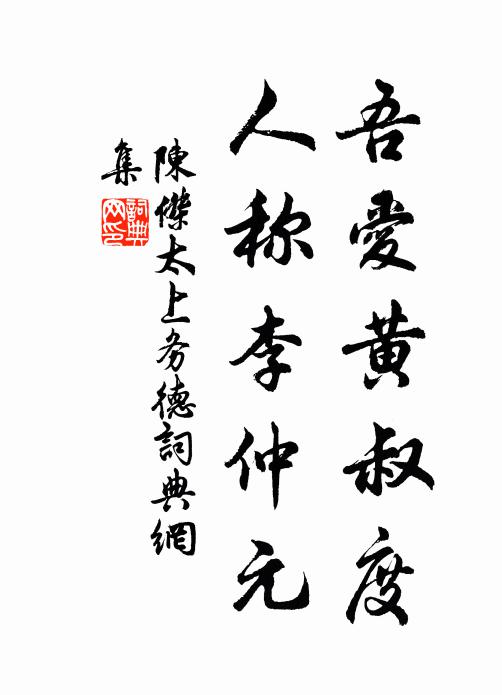 吾愛黃叔度
人称李仲元
陳傑太上务德詞典網
集
詞典网印